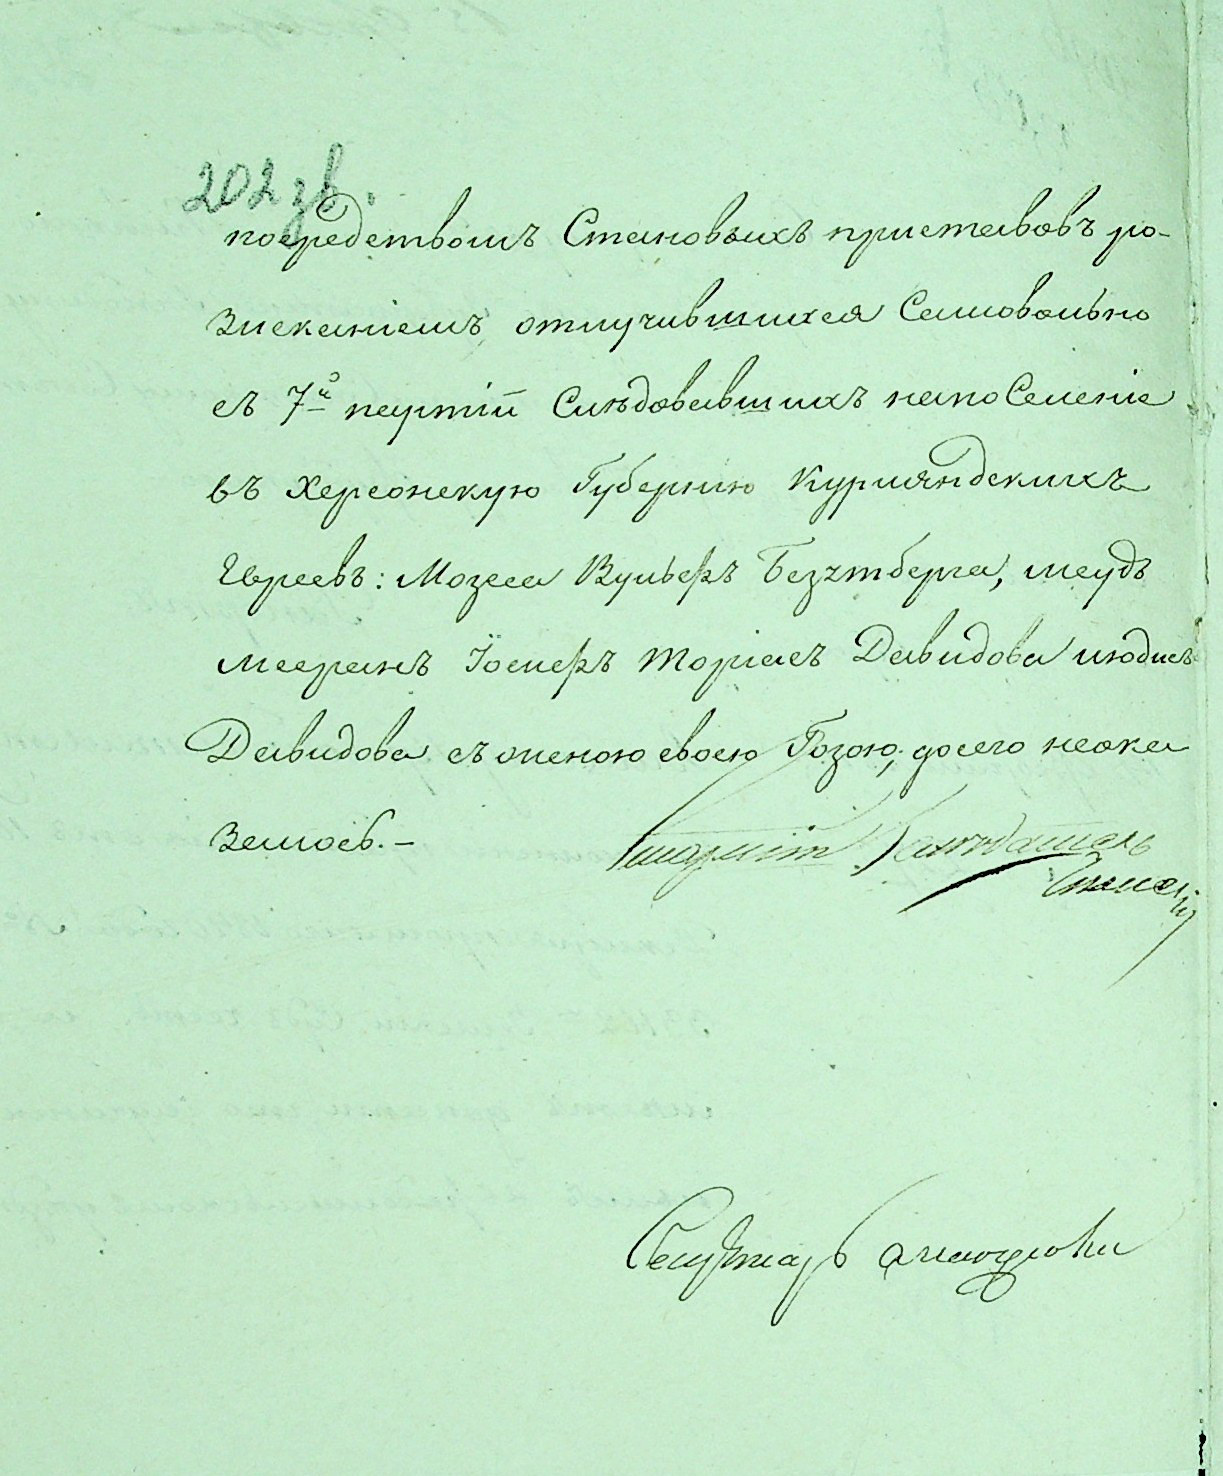 202 зв.
посредствомъ Становыхъ приставовъ ро-
зысканіемъ, отлучившихся Самовольно
съ 7й партій Слѣдовавшихъ на поселеніе
въ Херсонскую Губернію Курляндскихъ
Евреевъ: Мозеса Вульфъ Безтберга, меудъ
мееранъ Іосифъ Торіасъ Давидова июдисъ
Давидова съ женою своею Гозою, досего неока
залось. –
Засѣдатель
Секретарь